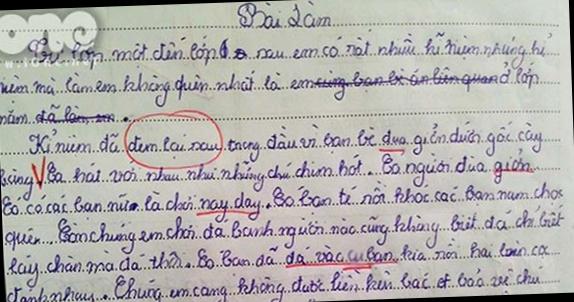 Bài Làm
Từ lớp một đến lớp 6 nay em có rất nhiều kĩ niệm nhưng kỉ
niệm mà làm em không quên nhất là em cùng bạn bè ăn liên quan ở lớp
năm đã làm em.
Kỉ niệm đã đem lại nau trong đầu vì bạn bè đua giởn dưới gốc cây
bàng Ca hát với nhau như những chú chim hót... Có người đùa giởn
Có các bạn nữ là chơi nay day. Có bạn té rồi khóc các bạn nam chọc
quên... Còn chúng em chơi đá banh người nào cũng không biết đá chỉ biết
lấy chân mà đá thôi. Có bạn đã đá vào cu bạn kia rồi hai bên cọ
đánh nhau... Chúng em cang không được liền kên bác